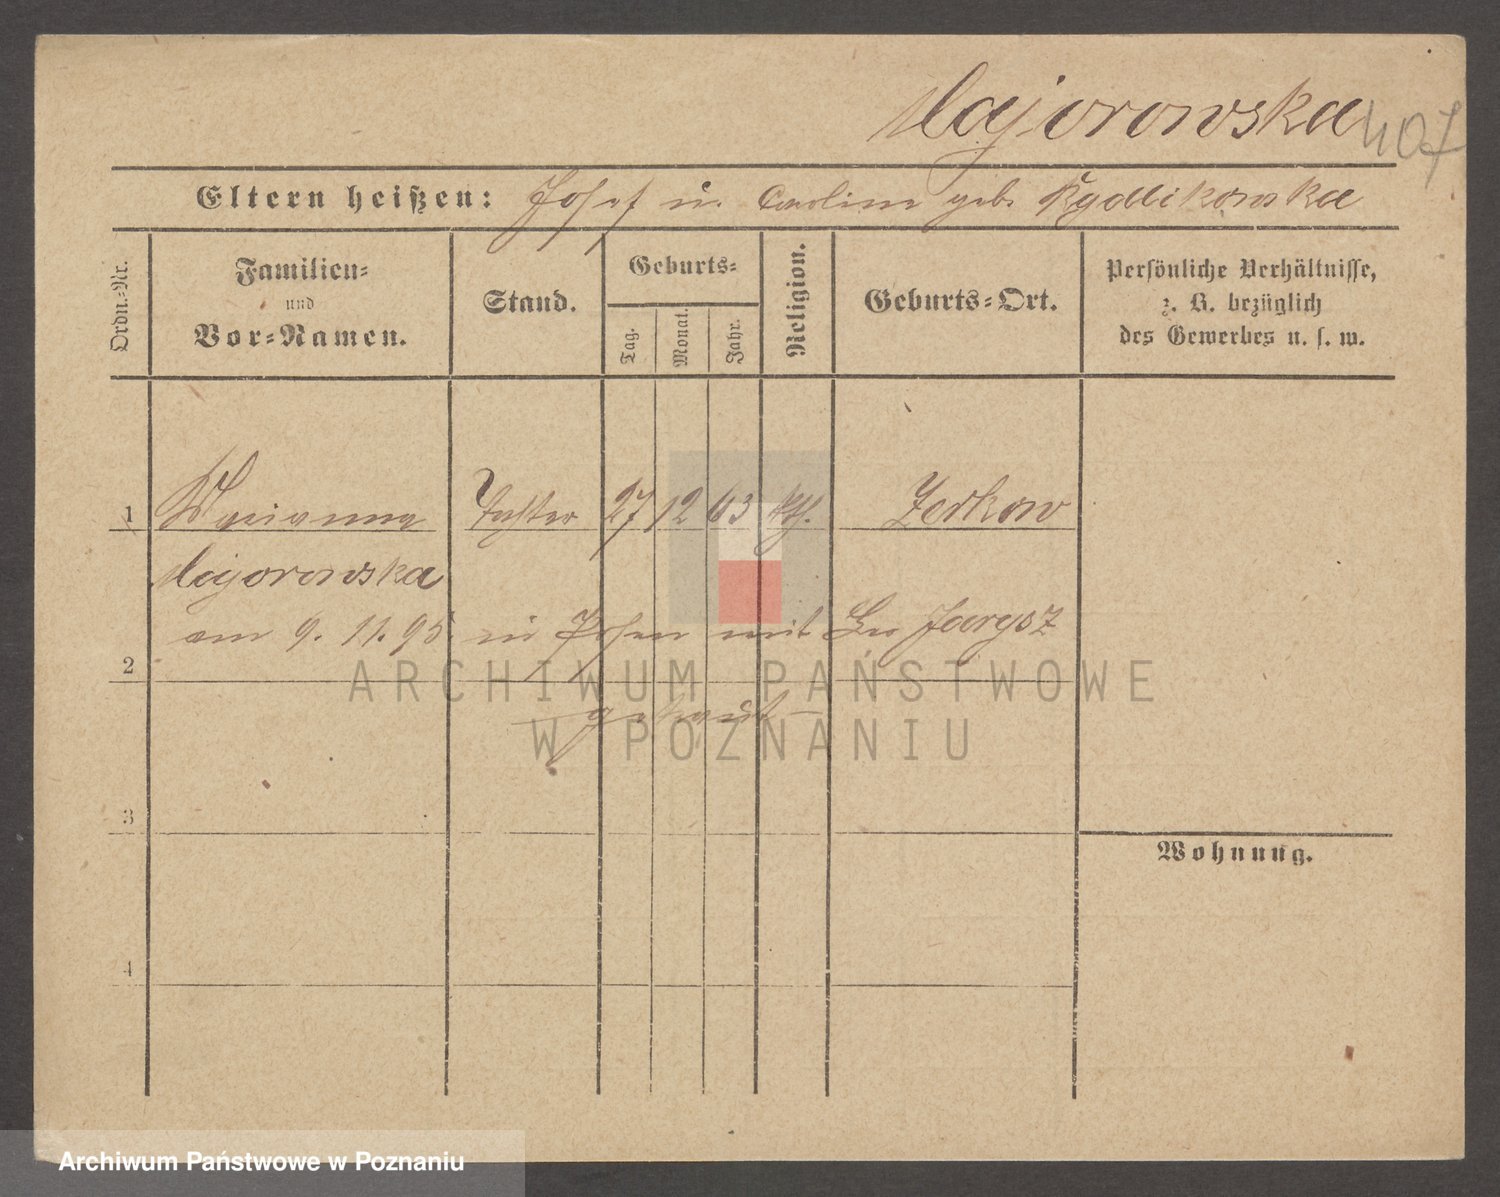 Majorowska 407
Eltern heißen: Josef u. Caroline geb.
Ordn.-Nr.
Familien-
und
Vor-Namen.
Stand.
Geburts-
Tag.
Monat.
Jahr.
Religion.
Geburts-Ort.
Persönliche Verhältnisse,
z. B. bezüglich
des Gewerbes u. s. w.
1 Marianna Tochter 27 12 63 kth. Zerkow
Majorowska
am 9. 11. 95 in Posen mit Leo
2
getraut
3
Wohnung.
4
ARCHIWUM PAŃSTWOWE
W POZNANIU
Archiwum Państwowe w Poznaniu